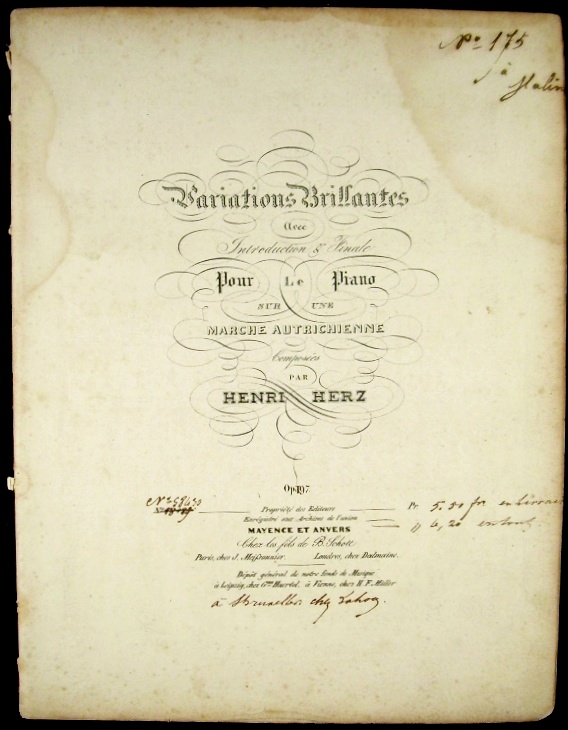 No 175
à
Variations Brillantes
Avec
Introduction & Finale
Pour Le Piano
SUR UNE
MARCHE AUTRICHIENNE
Composées
PAR
HENRI HERZ
Op. 197
Propriété des Editeurs
Enregistré aux Archives de l'union
MAYENCE ET ANVERS
Chez les fils de B. Schott
Paris, chez J. Meissonnier. Londres, chez Dalmaine.
Dépôt général de notre fonds de Musique
à Leipzig, chez Gme Haertel, à Vienne, chez H. F. Müller
à Bruxelles chez